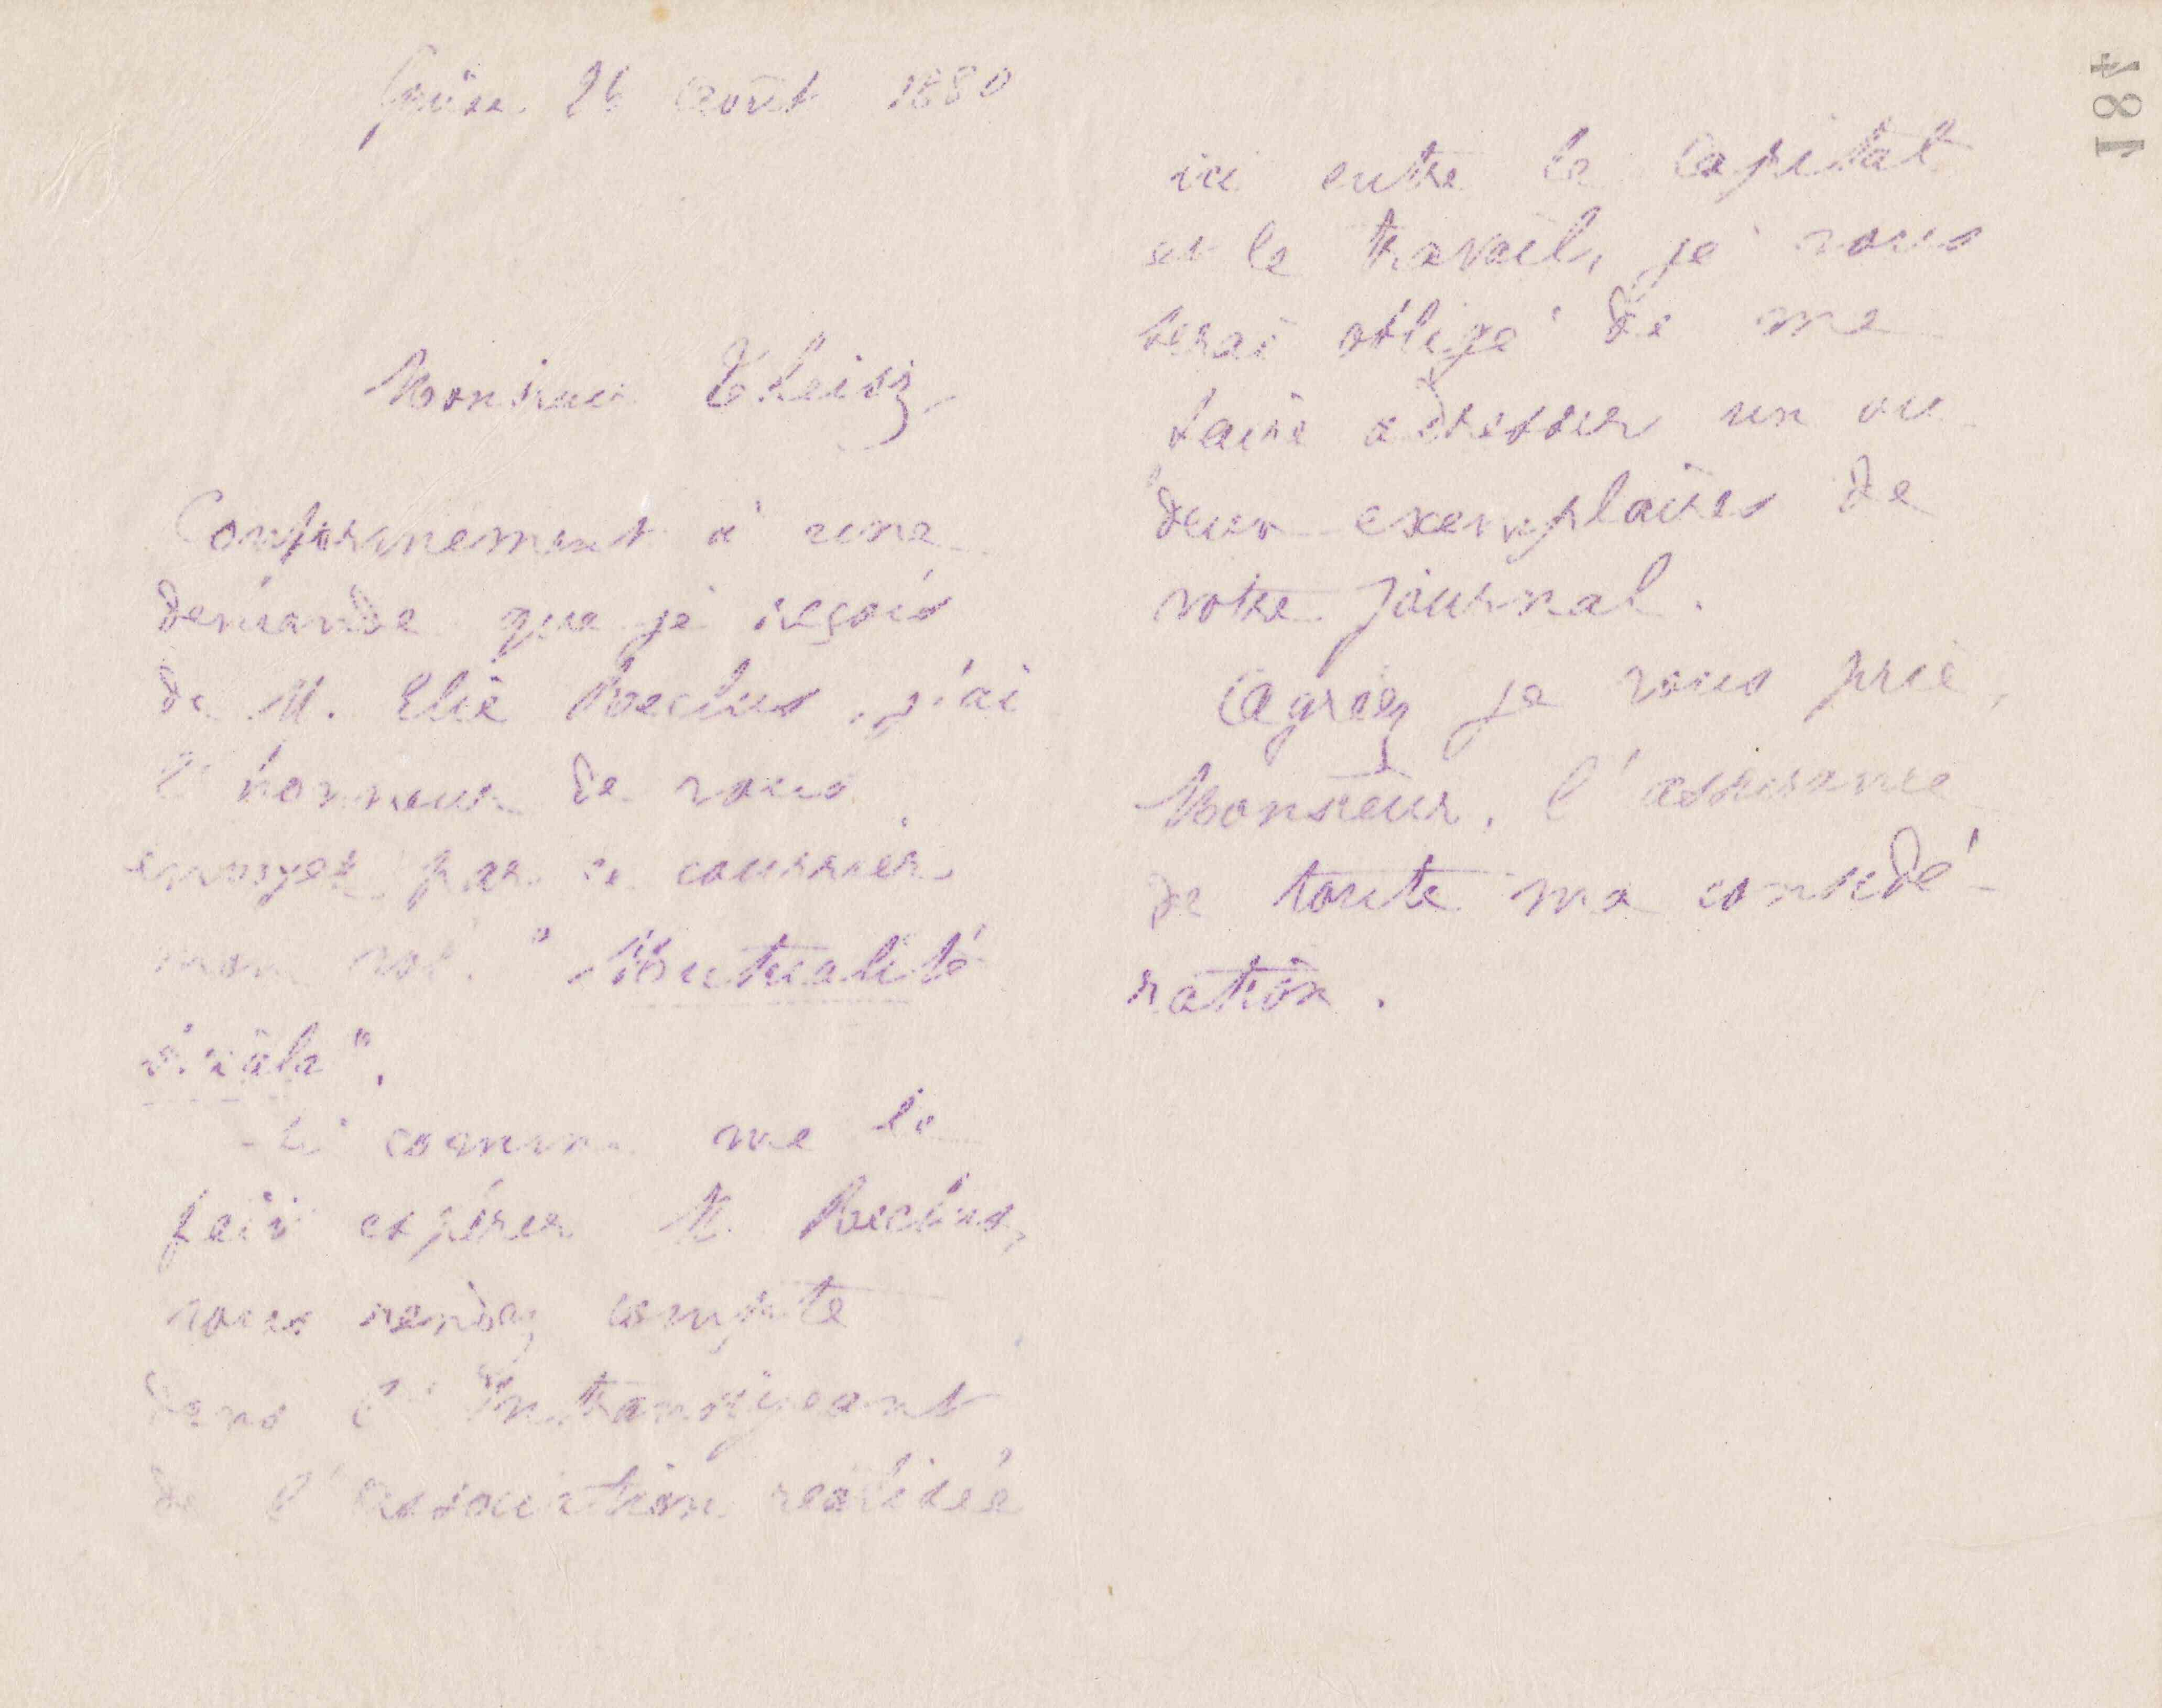 Guise 26 Août 1880
Monsieur Theisz,
Conformément à une
demande que je reçois
de M. Elie Reclus, j'ai
l'honneur de vous
envoyer par ce courrier
mon vol. "Mutualité
sociale".
Si comme me le
fait espérer M. Reclus,
vous rendez compte
dans l'Intransigeant
de l'association réalisée
ici entre le Capital
et le travail, je vous
serai obligé de me
faire adresser un ou
deux exemplaires de
votre Journal.
Agréez je vous prie,
Monsieur, l'assurance
de toute ma considé-
ration.
481